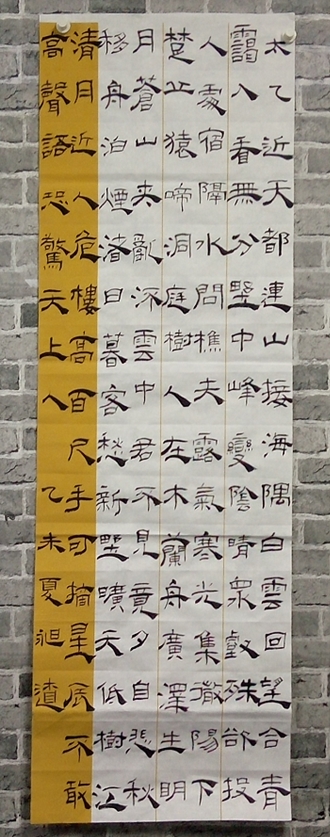 太乙近天都連山接海隅白雲回望合青
靄入看無分野中峰變陰晴眾壑殊欲投
人處宿隔水問樵夫露氣寒光集微陽下
楚丘猿啼洞庭樹人在木蘭舟廣澤生明
月蒼山夾亂流雲中君不見竟夕自悲秋
移舟泊煙渚日暮客愁新野曠天低樹江
清月近人危樓高百尺手可摘星辰不敢
高聲語恐驚天上人乙未夏